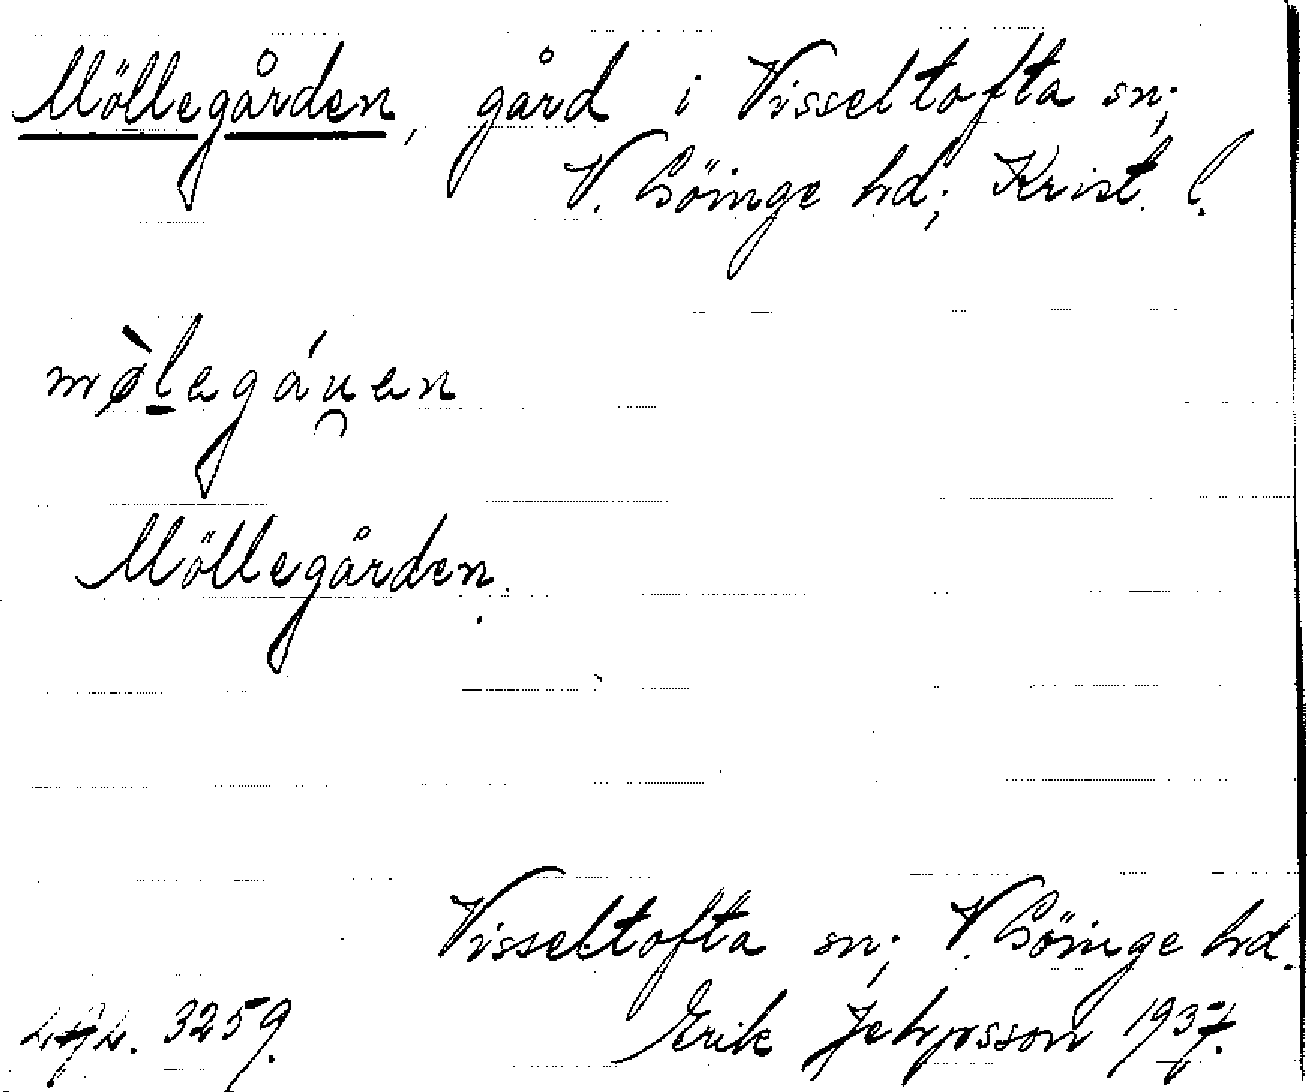 Möllegården, gård i Visseltofta sn;
V. Göinge hd; Krist. l.
mø̀legáu̯en
Möllegården.
Visseltofta sn; V. Göinge hd.
3259. Erik Jeppsson 1937.